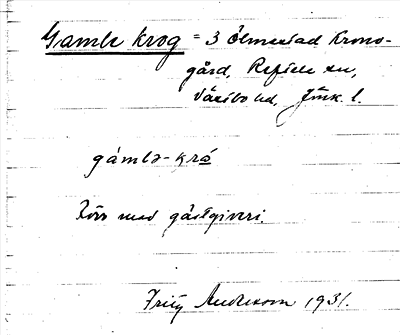 Gamle Krog = 3 Ölmestad Krono-
gård, Reftele sn,
Västbo hd, Jönk. l.
gámlə-krå
Förr med gästgiveri.
Fritz Andersson 1931.